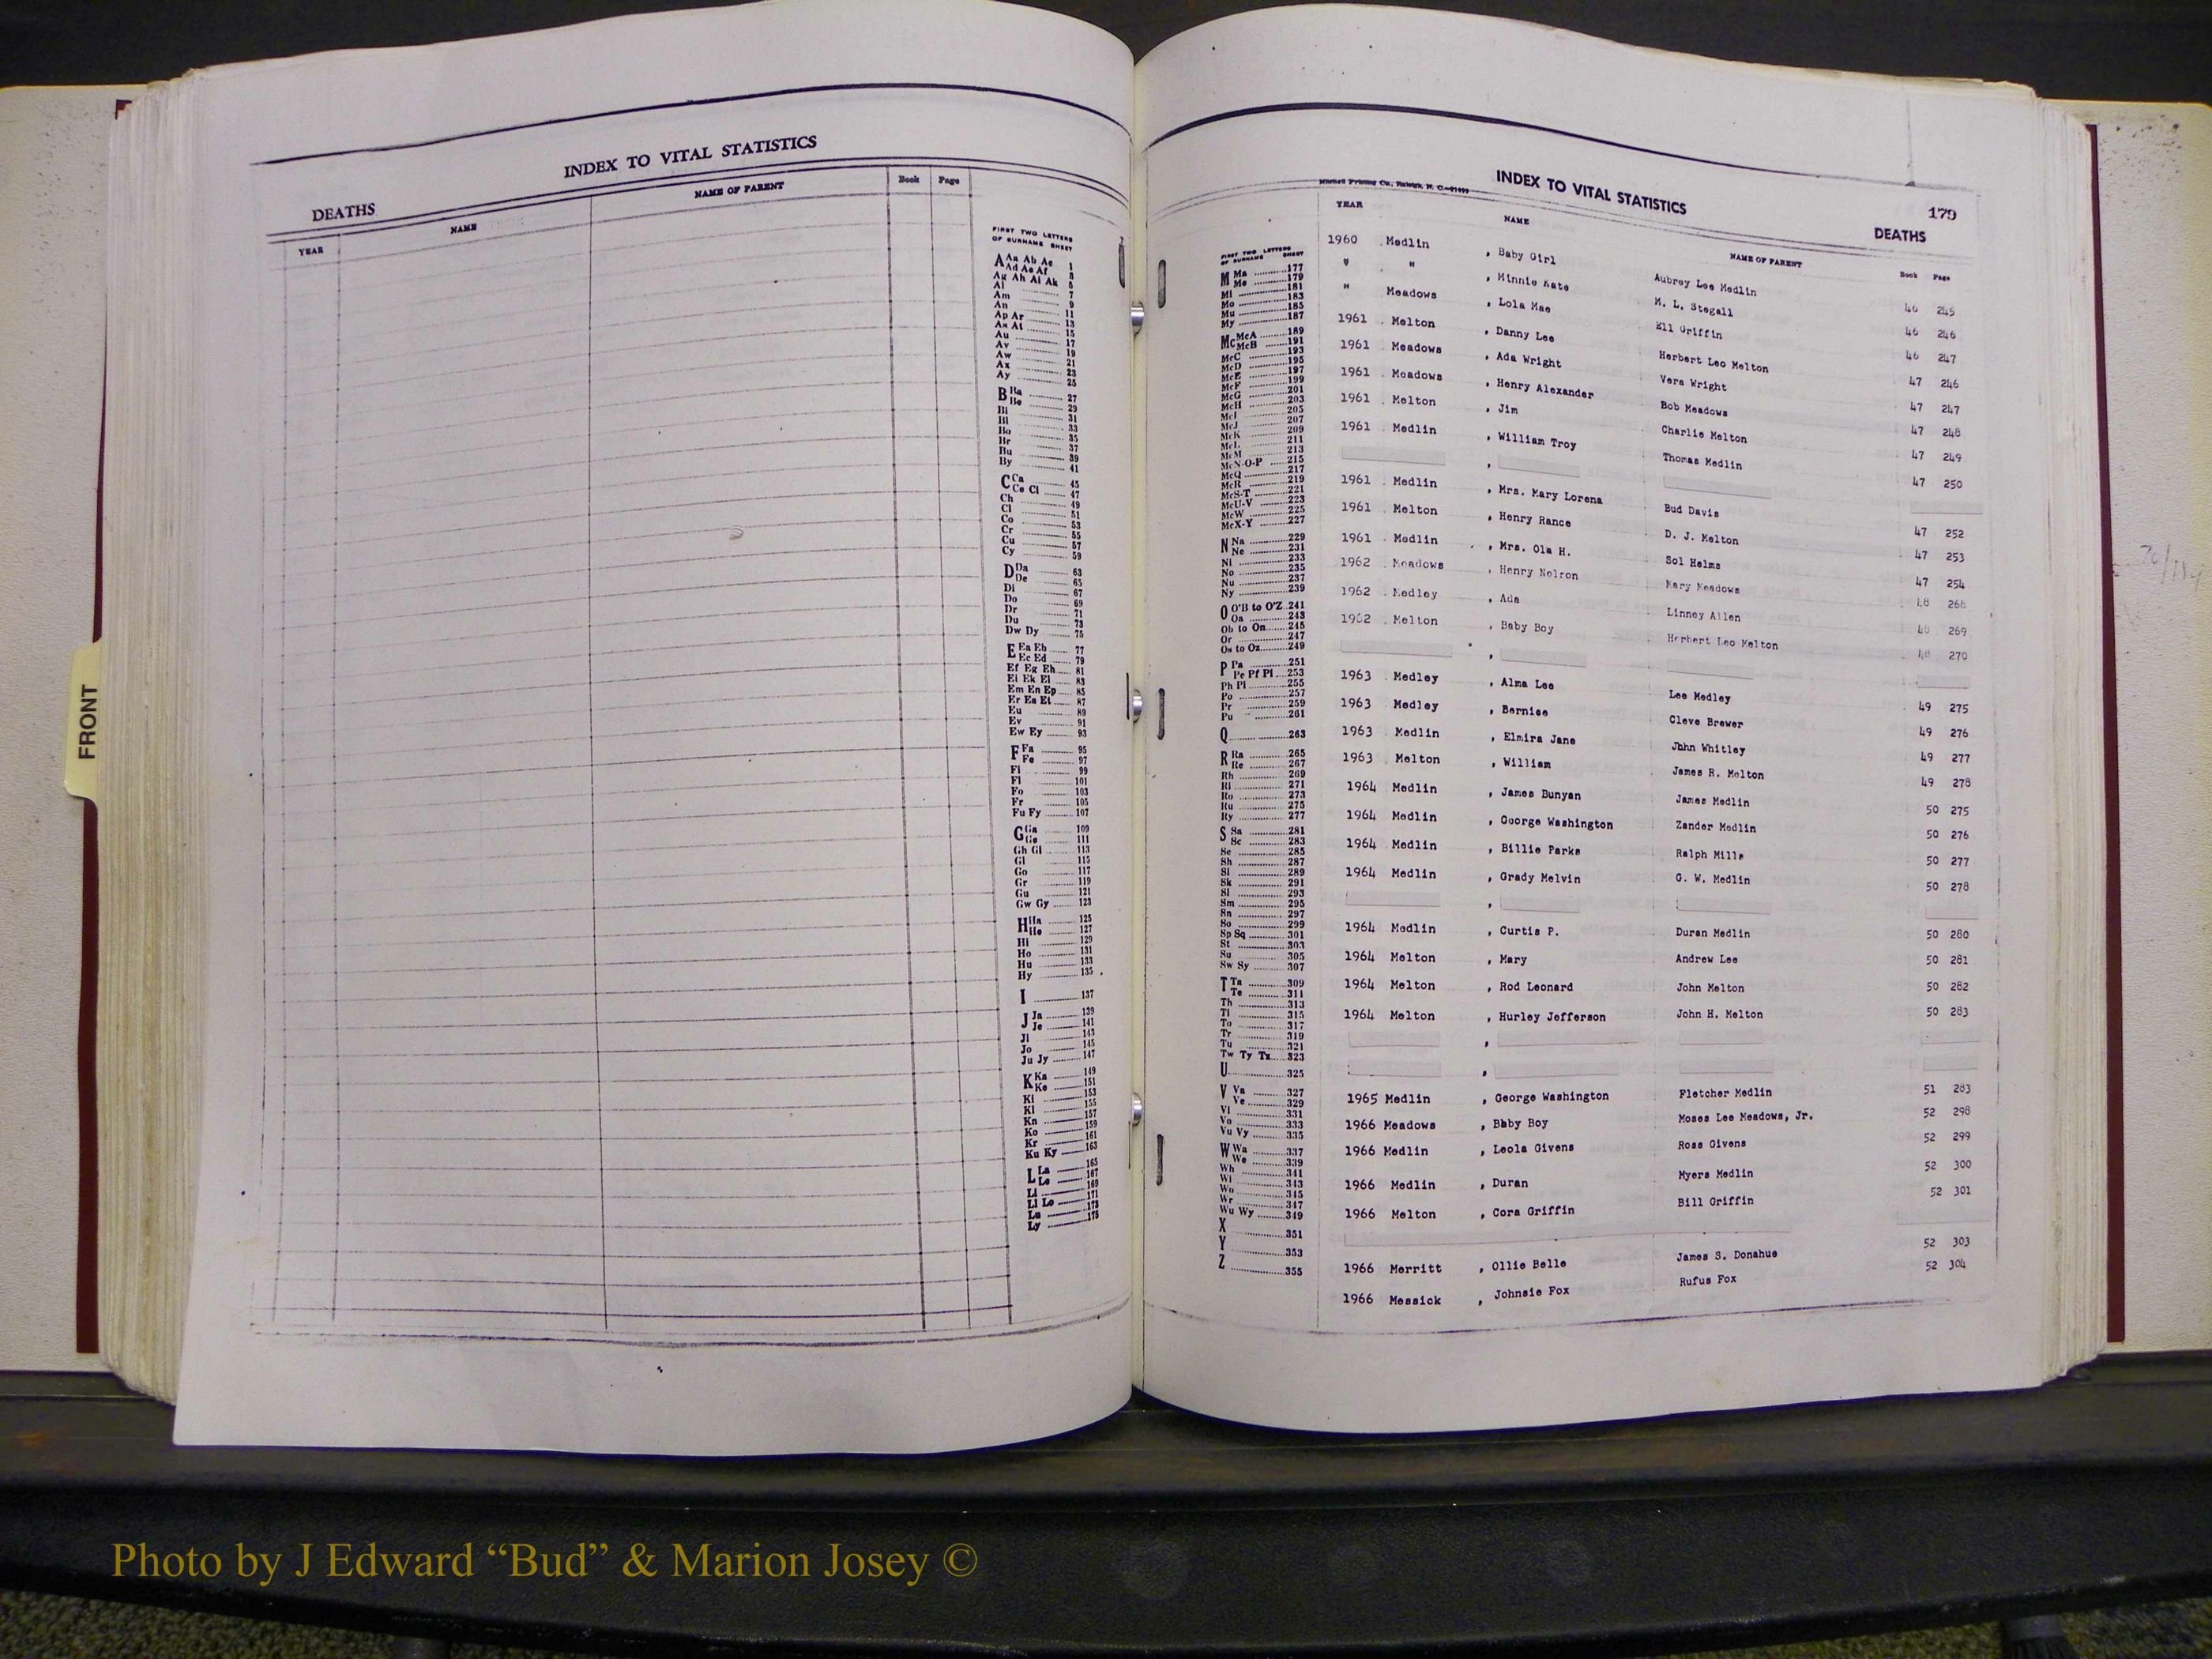 INDEX TO VITAL STATISTICS
DEATHS
YEAR NAME NAME OF PARENT Book Page
FIRST TWO LETTERS
OF SURNAME SHEET
A Aa Ab Ac 1
Ad Ae Af 3
Ag Ah Ai Ak 5
Al 7
Am 9
An 11
Ap Ar 13
As At 15
Au 17
Av 19
Aw 21
Ax 23
Ay 25
B Ba 27
Be 29
Bi 31
Bl 33
Bo 35
Br 37
Bu 39
By 41
C Ca 45
Ce Ci 47
Ch 49
Cl 51
Co 53
Cr 55
Cu 57
Cy 59
D Da 63
De 65
Di 67
Do 69
Dr 71
Du 73
Dw Dy 75
E Ea Eb 77
Ec Ed 79
Ef Eg Eh 81
Ei Ek El 83
Em En Ep 85
Er Es Et 87
Eu 89
Ev 91
Ew Ey 93
F Fa 95
Fe 97
Fi 99
Fl 101
Fo 103
Fr 105
Fu Fy 107
G Ga 109
Ge 111
Gh Gi 113
Gl 115
Go 117
Gr 119
Gu 121
Gw Gy 123
H Ha 125
He 127
Hi 129
Ho 131
Hu 133
Hy 135
I 137
J Ja 139
Je 141
Ji 143
Jo 145
Ju Jy 147
K Ka 149
Ke 151
Ki 153
Kl 155
Kn 157
Ko 159
Kr 161
Ku Ky 163
L La 165
Le 167
Li 169
Ll Lo 171
Lu 173
Ly 175
FRONT
Mitchell Printing Co., Raleigh, N. C.
INDEX TO VITAL STATISTICS
179
DEATHS
YEAR NAME NAME OF PARENT Book Page
FIRST TWO LETTERS
OF SURNAME SHEET
M Ma 177
Me 179
Mi 181
Mo 183
Mu 185
My 187
Mc McA 189
McB 191
McC 193
McD 195
McE 197
McF 199
McG 201
McH 203
McI 205
McJ 207
McK 209
McL 211
McM 213
McN-O-P 215
McQ 217
McR 219
McS-T 221
McU-V 223
McW 225
McX-Y 227
N Na 229
Ne 231
Ni 233
No 235
Nu 237
Ny 239
O O'B to O'Z 241
Oa 243
Ob to On 245
Or 247
Os to Oz 249
P Pa 251
Pe Pf Pl 253
Ph Pi 255
Po 257
Pr 259
Pu 261
Q 263
R Ra 265
Re 267
Rh 269
Ri 271
Ro 273
Ru 275
Ry 277
S Sa 281
Sc 283
Se 285
Sh 287
Si 289
Sk 291
Sl 293
Sm 295
Sn 297
So 299
Sp Sq 301
St 303
Su 305
Sw Sy 307
T Ta 309
Te 311
Th 313
Ti 315
To 317
Tr 319
Tu 321
Tw Ty Tz 323
U 325
V Va 327
Ve 329
Vi 331
Vo 333
Vu Vy 335
W Wa 337
We 339
Wh 341
Wi 343
Wo 345
Wr 347
Wu Wy 349
X 351
Y 353
Z 355
1960 Medlin , Baby Girl Aubrey Lee Medlin 46 245
" " , Minnie Kate M. L. Stegall 46 246
" Meadows , Lola Mae Ell Griffin 46 247
1961 Melton , Danny Lee Herbert Leo Melton 47 246
1961 Meadows , Ada Wright Vera Wright 47 247
1961 Meadows , Henry Alexander Bob Meadows 47 248
1961 Melton , Jim Charlie Melton 47 249
1961 Medlin , William Troy Thomas Medlin 47 250
,
1961 Medlin , Mrs. Mary Lorena Bud Davis 47 252
1961 Melton , Henry Rance D. J. Melton 47 253
1961 Medlin , Mrs. Ola H. Sol Helms 47 254
1962 Meadows , Henry Nelson Mary Meadows 48 268
1962 Medley , Ada Linney Allen 48 269
1962 Melton , Baby Boy Herbert Leo Melton 48 270
,
1963 Medley , Alma Lee Lee Medley 49 275
1963 Medley , Bernice Cleve Brewer 49 276
1963 Medlin , Elmira Jane Jbhn Whitley 49 277
1963 Melton , William James R. Melton 49 278
1964 Medlin , James Bunyan James Medlin 50 275
1964 Medlin , George Washington Zander Medlin 50 276
1964 Medlin , Billie Parks Ralph Mills 50 277
1964 Medlin , Grady Melvin G. W. Medlin 50 278
,
1964 Medlin , Curtis P. Duran Medlin 50 280
1964 Melton , Mary Andrew Lee 50 281
1964 Melton , Rod Leonard John Melton 50 282
1964 Melton , Hurley Jefferson John H. Melton 50 283
,
,
1965 Medlin , George Washington Fletcher Medlin 51 283
1966 Meadows , Bbby Boy Moses Lee Meadows, Jr. 52 298
1966 Medlin , Leola Givens Ross Givens 52 299
1966 Medlin , Duran Myers Medlin 52 300
1966 Melton , Cora Griffin Bill Griffin 52 301
1966 Merritt , Ollie Belle James S. Donahue 52 303
1966 Messick , Johnsie Fox Rufus Fox 52 304
Photo by J Edward “Bud” & Marion Josey ©